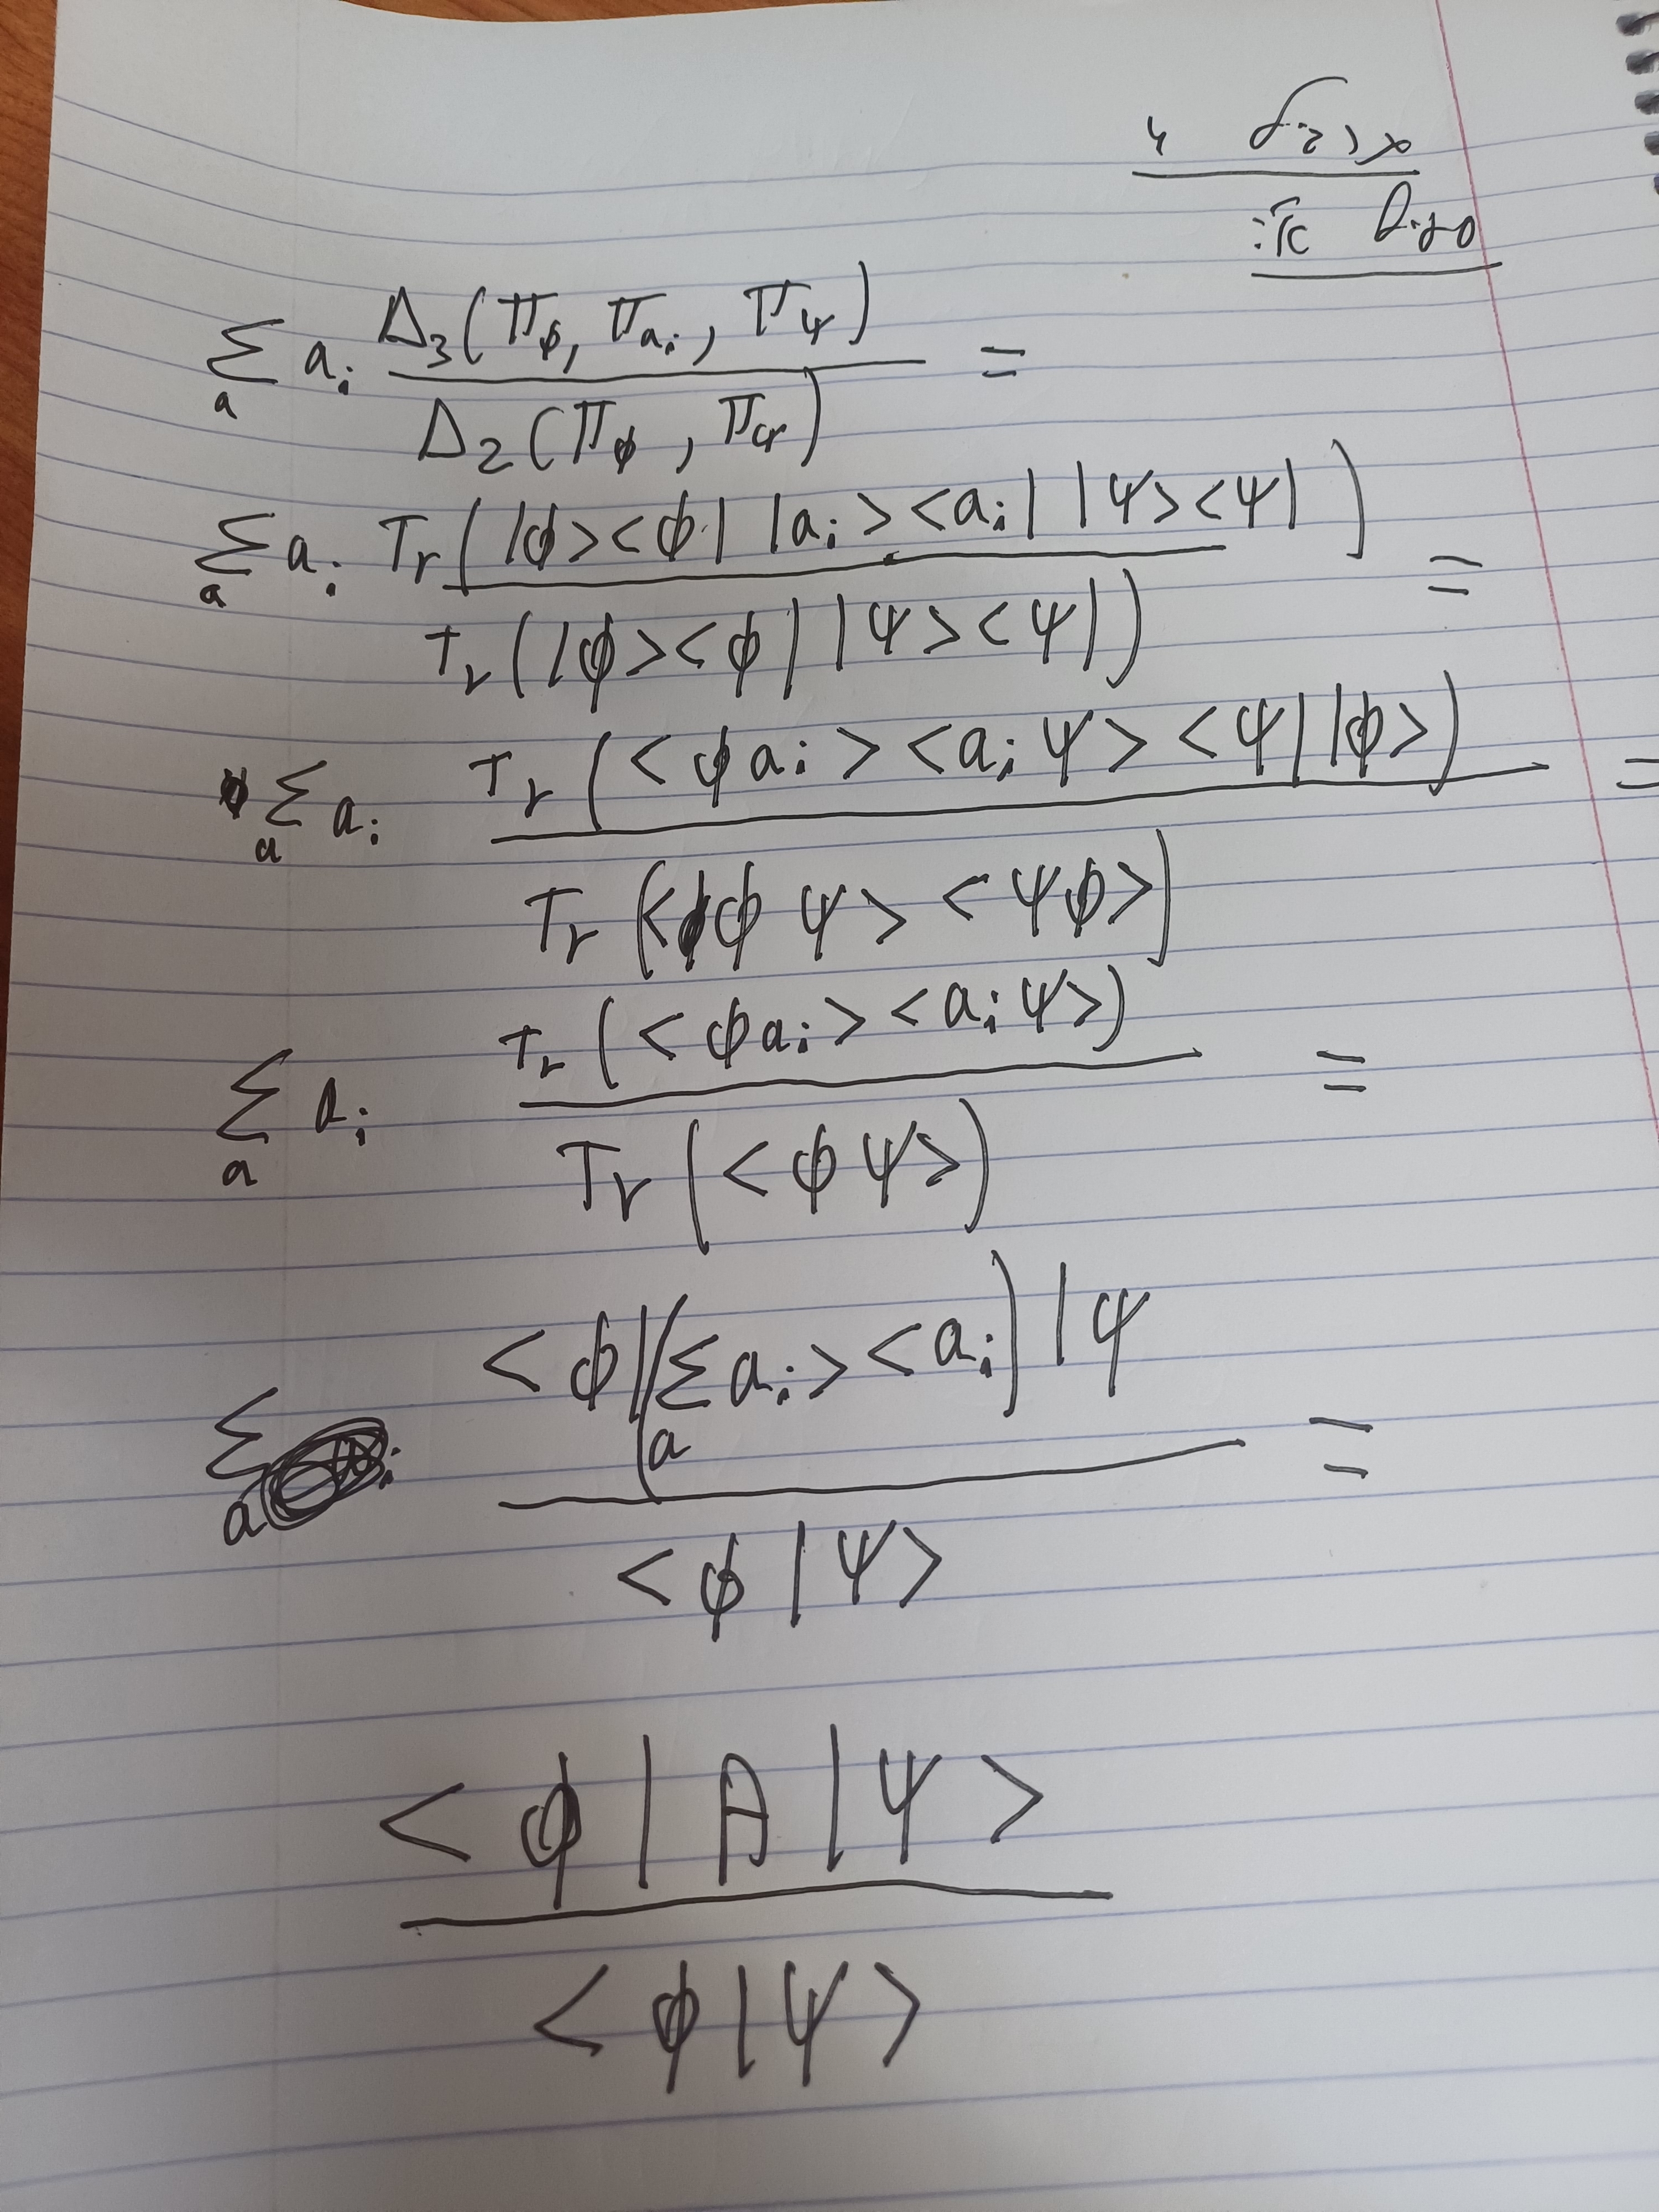 Σ_a a_i Δ_3(Π_φ, Π_{a_i}, Π_ψ) / Δ_2(Π_φ, Π_ψ) =
Σ_a a_i Tr(|φ><φ| |a_i><a_i| |ψ><ψ|) / Tr(|φ><φ| |ψ><ψ|) =
Σ_a a_i Tr(<φ a_i><a_i ψ><ψ| |φ>) / Tr(<φ ψ><ψ φ>) =
Σ_a a_i Tr(<φ a_i><a_i ψ>) / Tr(<φ ψ>) =
Σ_a <φ|(Σ_a a_i><a_i)|ψ / <φ|ψ> =
<φ|A|ψ> / <φ|ψ>